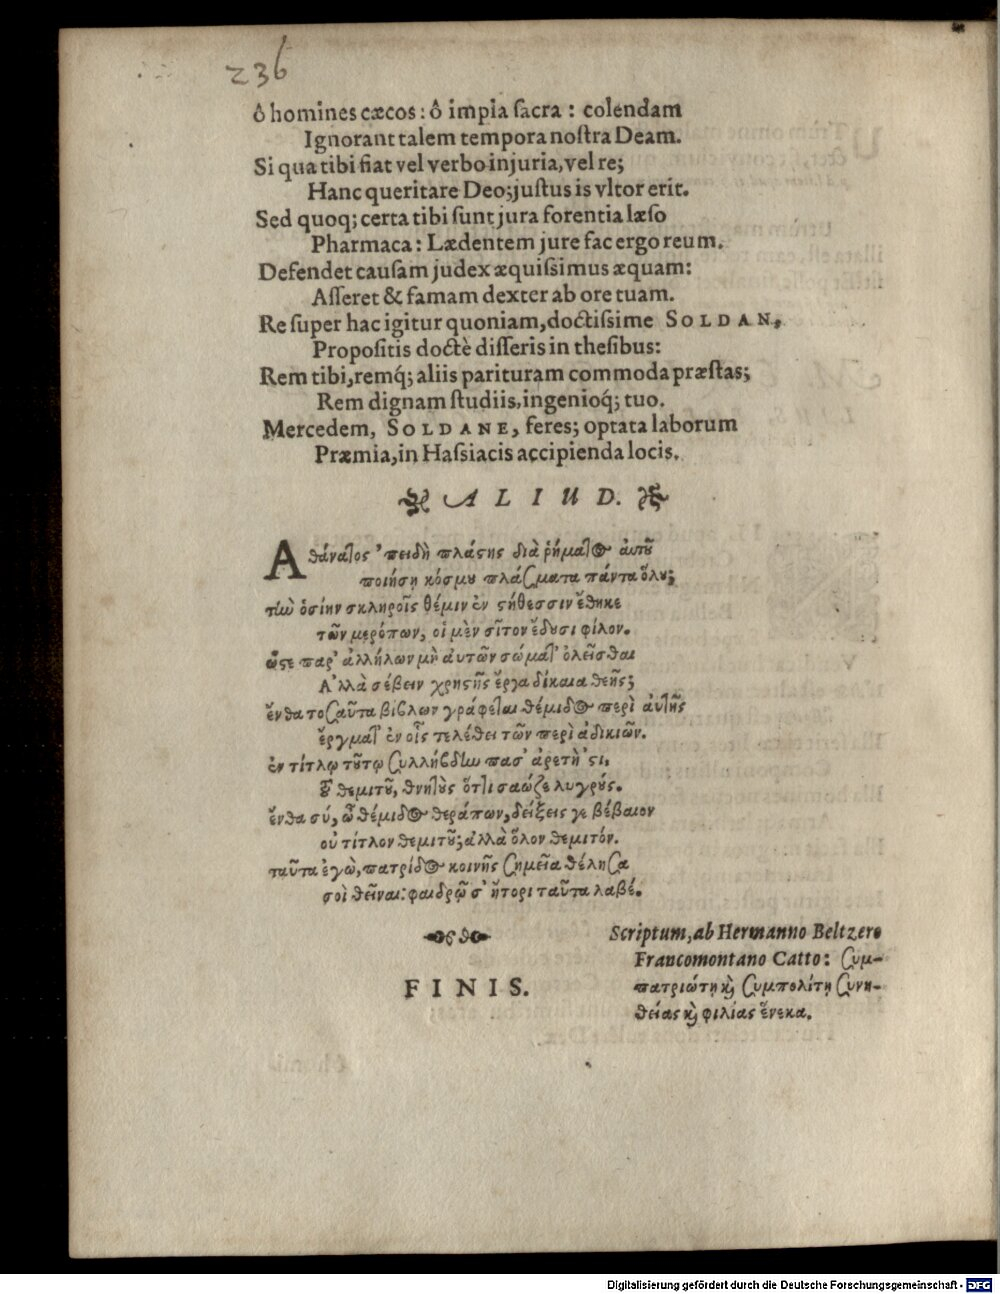 236
ô homines cæcos: ô impia ſacra : colendam
Ignorant talem tempora noſtra Deam.
Si qua tibi fiat vel verbo injuria, vel re;
Hanc queritare Deo; juſtus is vltor erit.
Sed quoq; certa tibi ſunt jura forentia læſo
Pharmaca: Lædentem jure fac ergo reum.
Defendet cauſam judex æquiſsimus æquam:
Aſſeret & famam dexter ab ore tuam.
Re ſuper hac igitur quoniam, doctiſsime SOLDAN,
Propoſitis doctè diſſeris in theſibus:
Rem tibi, remq́; aliis parituram commoda præſtas;
Rem dignam ſtudiis, ingenioq́; tuo.
Mercedem, SOLDANE, feres; optata laborum
Præmia, in Haſsiacis accipienda locis.
ALIUD.
Αθάναῖος ’πειδὴ πλάστης διὰ ῥήματος ἀυτοῦ
ποιήση κόσμου πλάσματα πάντα ὅλου;
τὴν ὁσίην σκληροῖς θέμιν ἐν στήθεσσιν ἔθηκε
τῶν μερόπων, οἱ μὲν σῖτον ἔδουσι φίλον.
ὥστε παρ’ ἀλλήλων μὴ ἀυτῶν σώματ’ ὀλεῖσθαι
Ἀλλὰ σέβειν χρηστῆς ἔργα δίκαια θεῆς;
ἔνθα τοσαῦτα βίβλων γράφεται θέμιδος περὶ ἀυτῆς
ἔργματ’ ἐν οἷς τελέθει τῶν περὶ ἀδικιῶν.
ἐν τίτλῳ τούτῳ συλλήβδην πασ’ ἀρετή ’στι,
θεμιτοῦ, θνητοὺς ὅττι σαώζε λυγρούς.
ἔνθα σύ, ὦ θέμιδος θεράπων, δείξεις γε βέβαιον
οὐ τίτλον θεμιτοῦ; ἀλλὰ ὅλον θεμιτόν.
ταῦτα ἐγὼ, πατρίδος κοινῆς σημεῖα θέλησα
σοὶ θεῖναι: φαιδρῷ σ’ ἤτορι ταῦτα λαβέ.
Scriptum, ab Hermanno Beltzero
Francomontano Catto: συμ-
πατριώτῃ καὶ συμπολίτῃ συνη-
θείας καὶ φιλίας ἕνεκα.
FINIS.
Digitalisierung gefördert durch die Deutsche Forschungsgemeinschaft - DFG